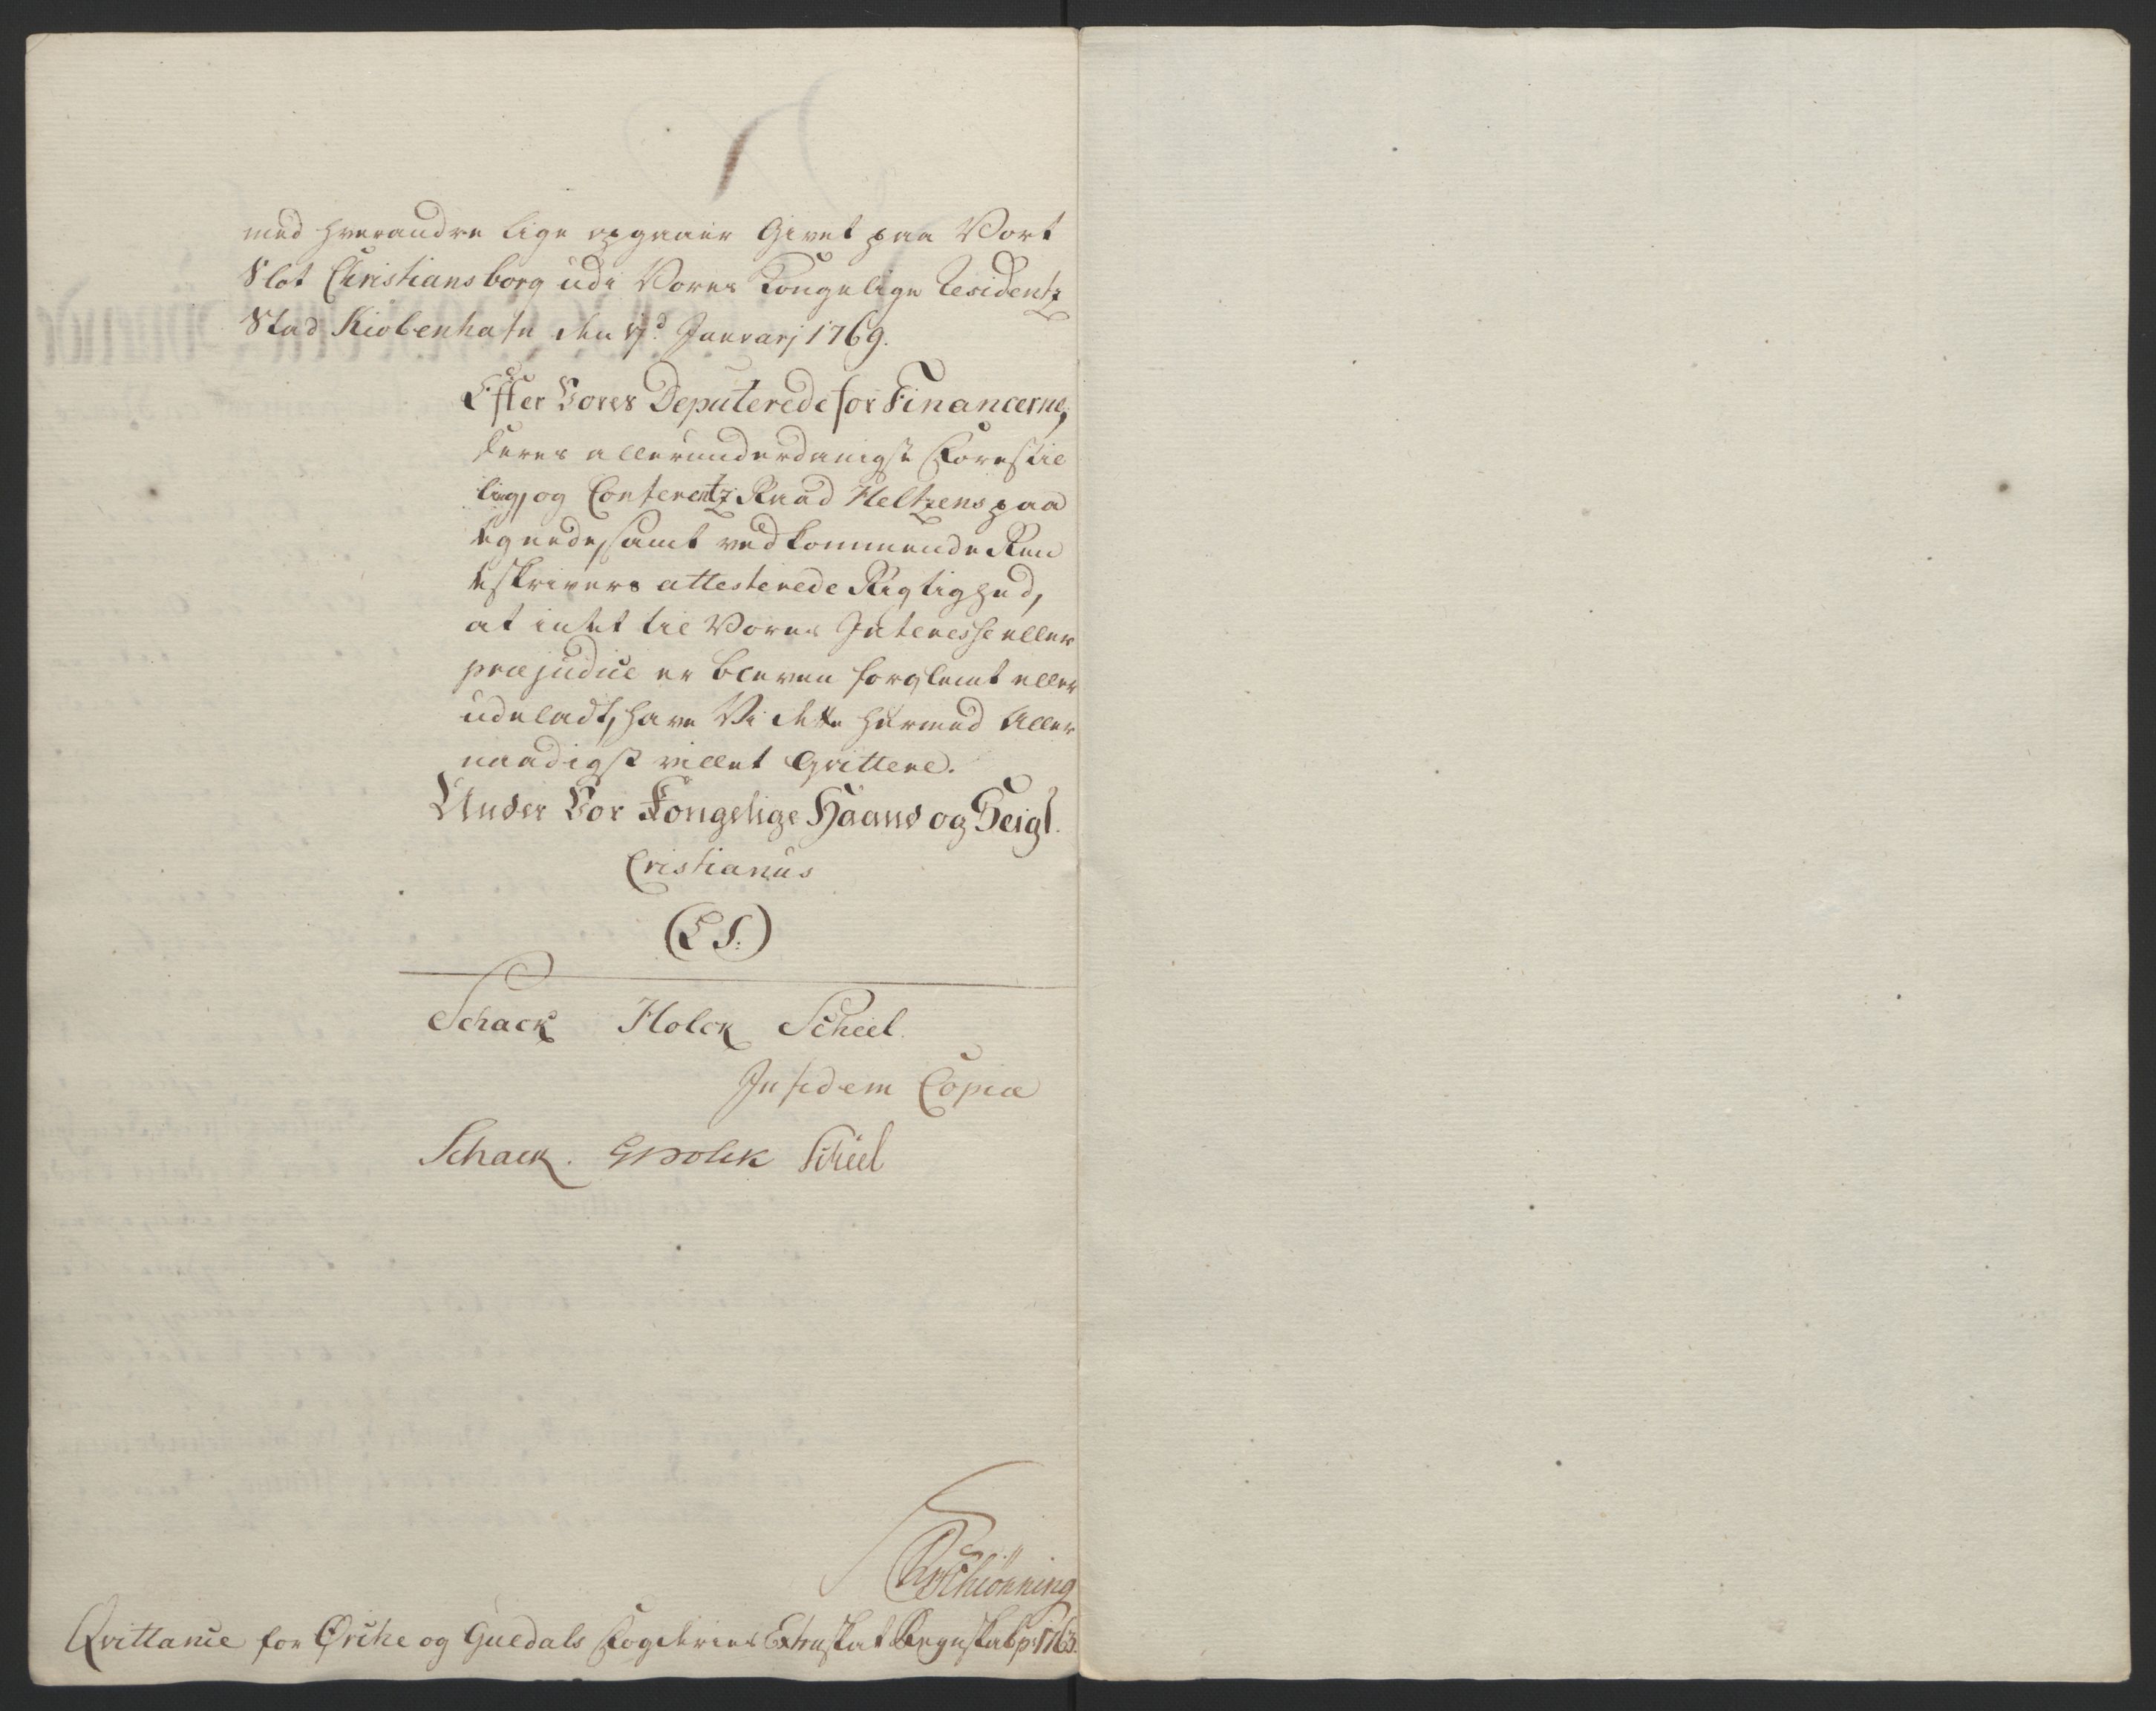 med hverandre lige opgaaer Givet paa Vort
Slot Christiansborg udi Vores Kongelige Residentz
Stad Kiobenhafn den Januarj 1769.
Efter Vores Deputerede for Financerne,
deres allerunderdanigst Forestil
ling, og Conferentz Raad Heltzens paa
egnede, samt vedkommende Ren
teskrivers attesterede Rigtighed,
at intet til Vores Interesse eller
præjudice er bleven forglemt eller
udeladt, have Vi dette hermed Aller
naadigst villet Qvittere.
Under Vor Kongelige Haand og Seigl.
Cristianus
(L S.)
Schack Holck Scheel.
In fidem Copiæ
Schack. GHolck Scheel
Schiönning
Qvittance for Ørche og Guldals Fogderies Extraskat Regnskab p: 1763.